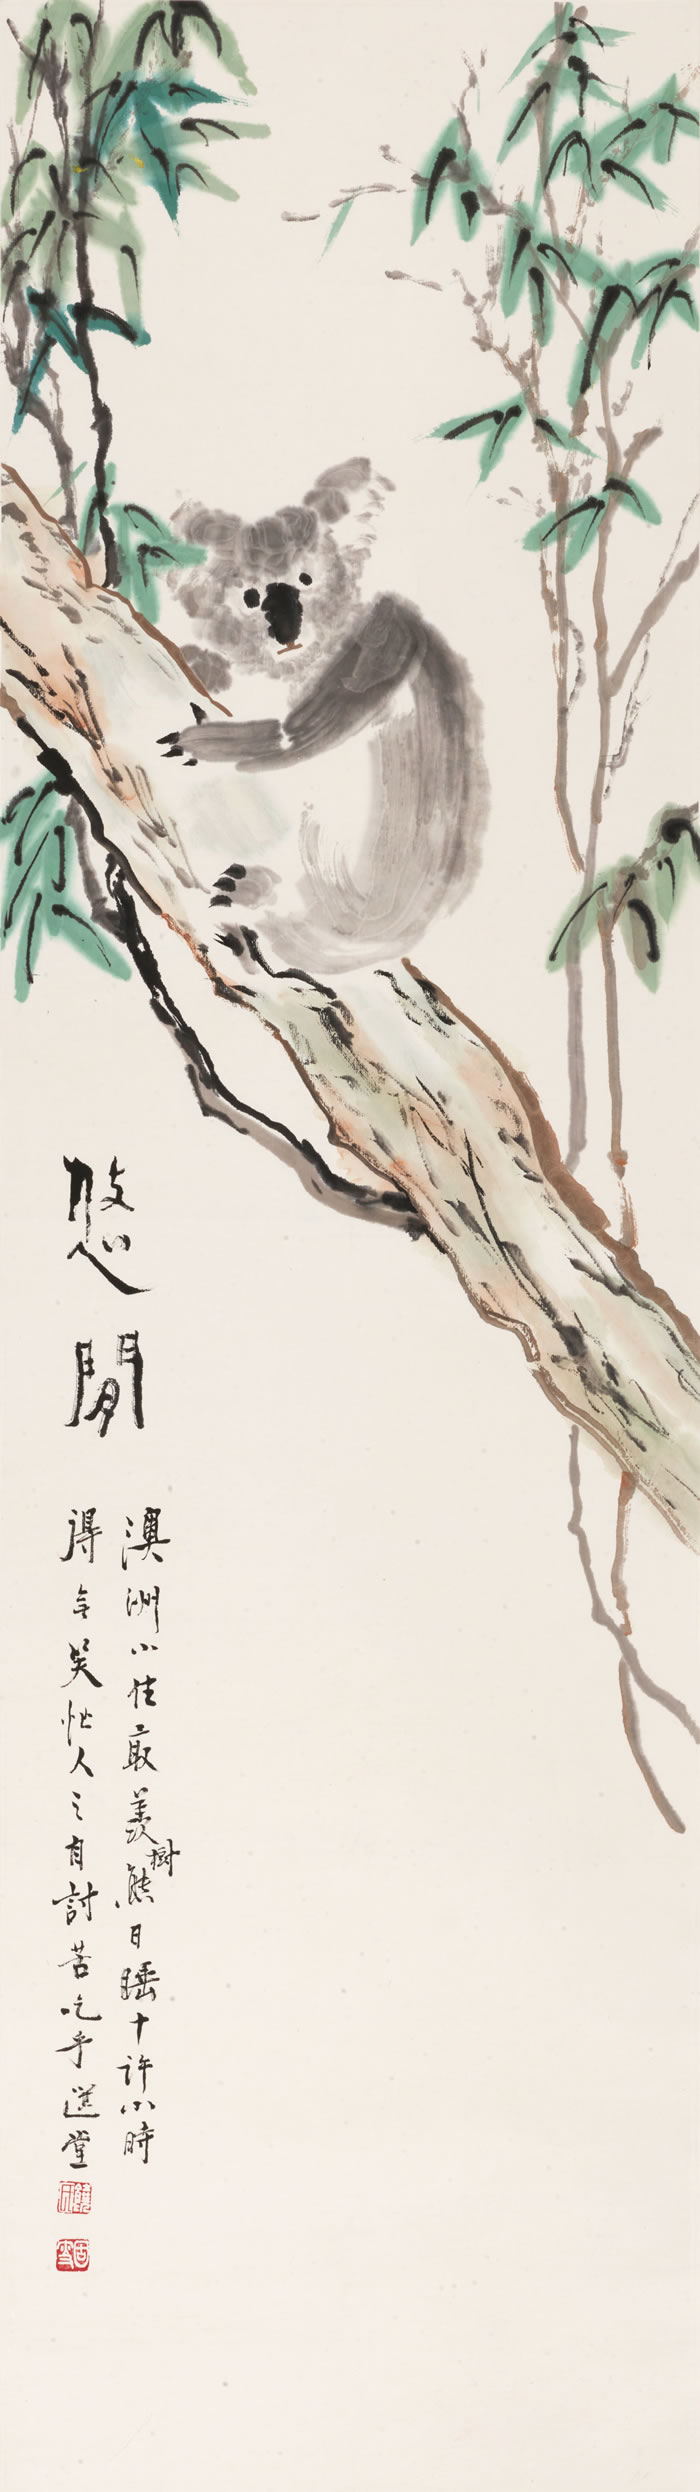 悠閒
澳洲小住最羨樹熊日睡十許小時
得無笑忙人之自討苦吃乎選堂